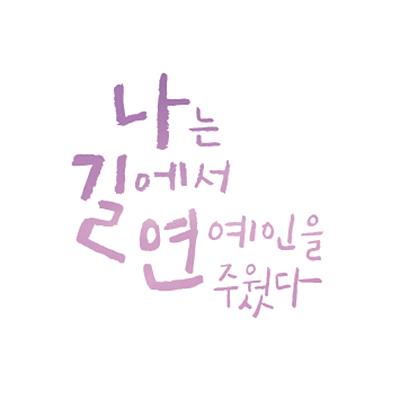 나는
길에서
연예인을
주웠다